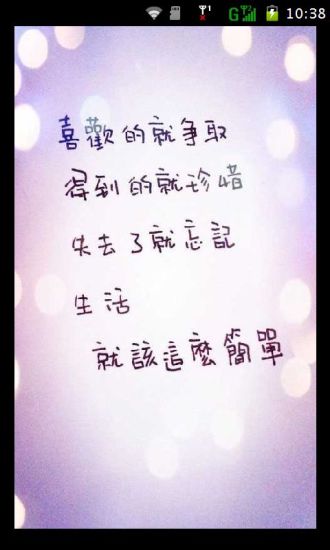 10:38
喜歡的就爭取
得到的就珍惜
失去了就忘記
生活
就該這麼簡單